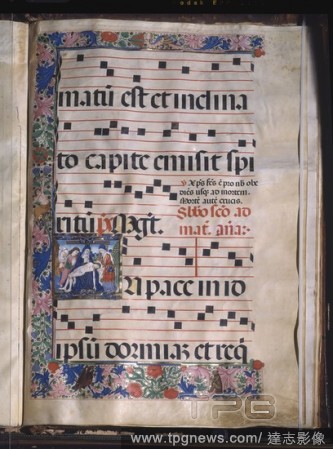 matū est et inclina
to capite emisit spi
ritū. ps. Agit.
℣ Xps fcs ē pro nob obe
diēs usq; ad mortem.
Morte autē crucis.
Sbbō scō ad
mat. aña:
N pace in id
ipsū dormiā et req̄
TPG
www.tpgnews.com/達志影像